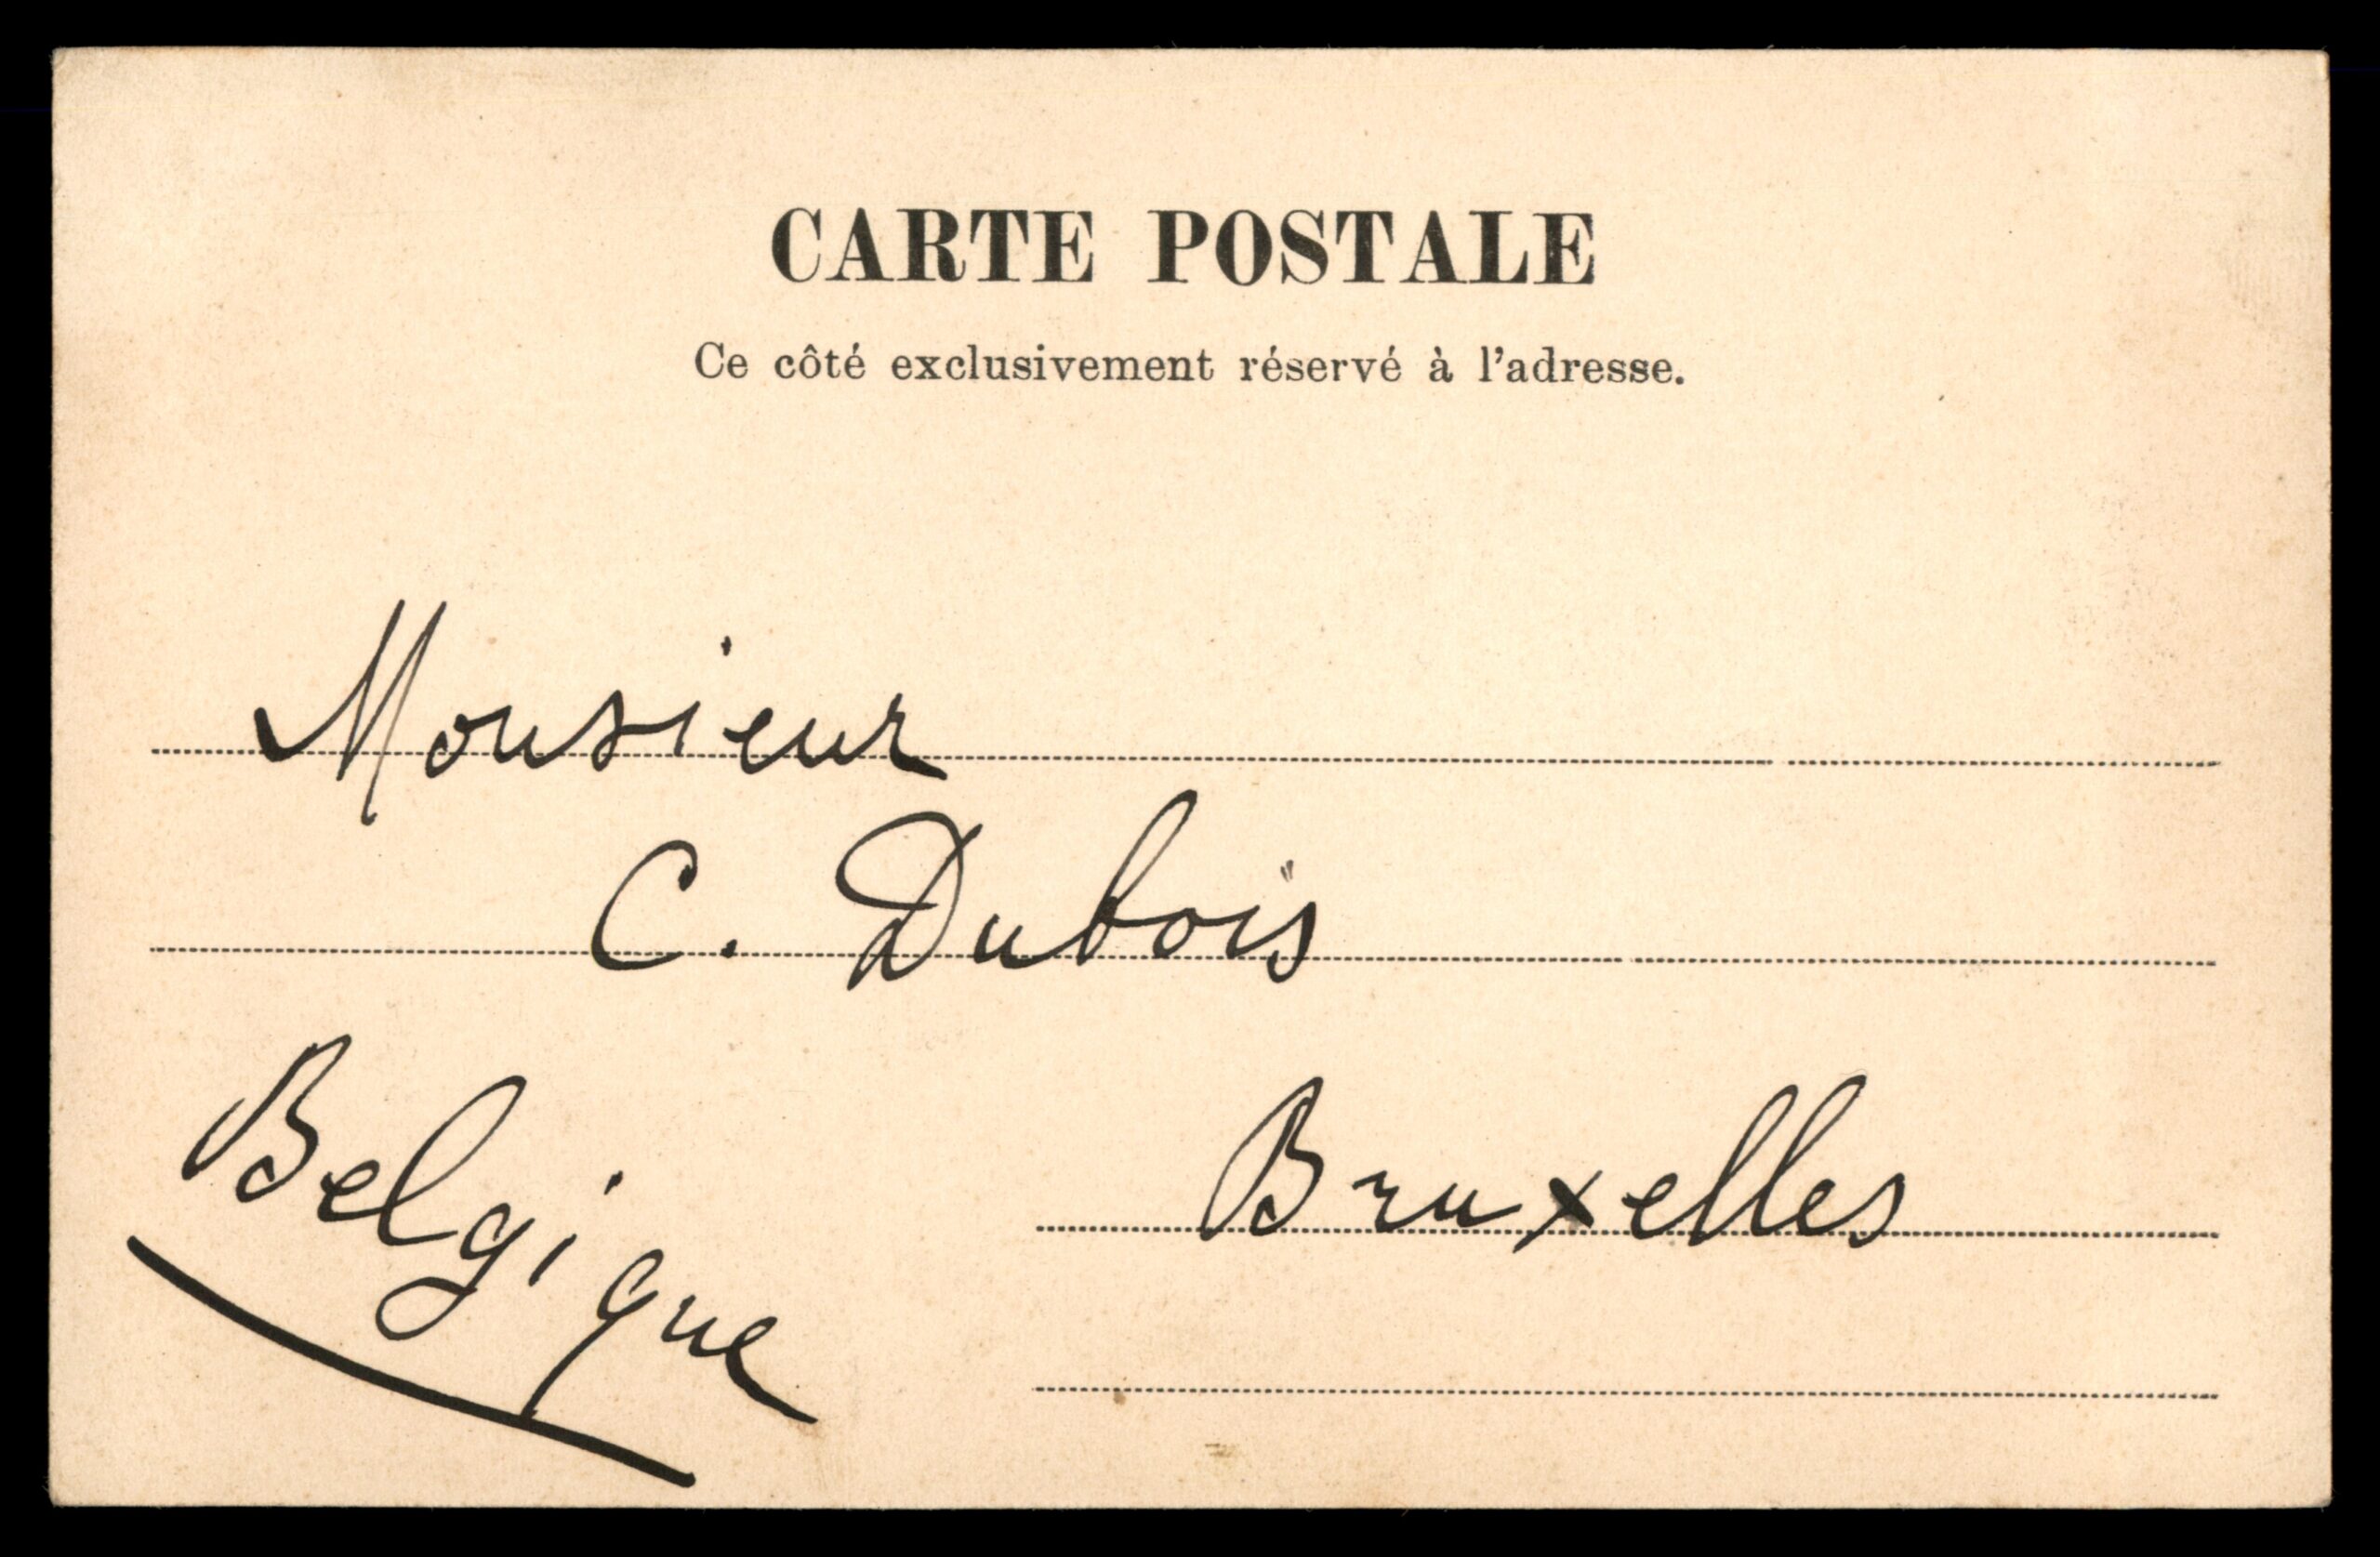 CARTE POSTALE
Ce côté exclusivement réservé à l'adresse.
Monsieur
C. Dubois
Bruxelles
Belgique